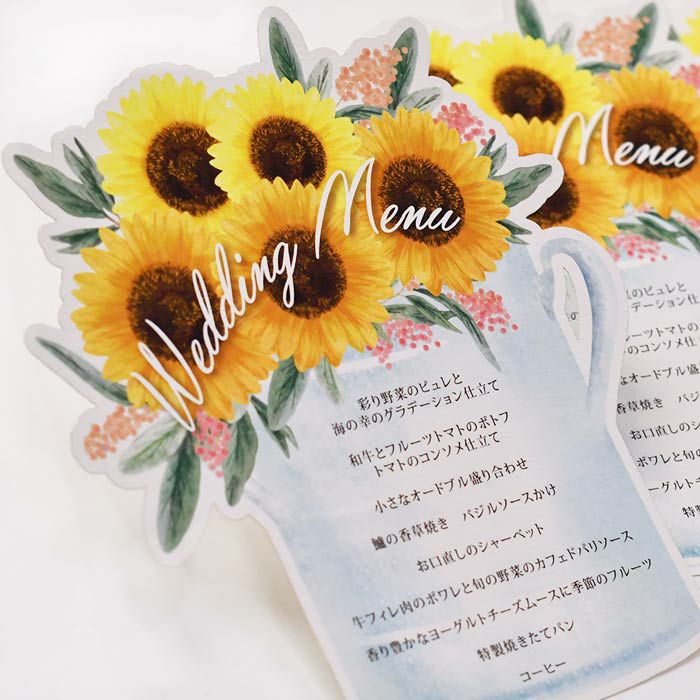 Wedding Menu
彩り野菜のピュレと
海の幸のグラデーション仕立て
和牛とフルーツトマトのポトフ
トマトのコンソメ仕立て
小さなオードブル盛り合わせ
鱸の香草焼き　バジルソースかけ
お口直しのシャーベット
牛フィレ肉のポワレと旬の野菜のカフェドパリソース
香り豊かなヨーグルトチーズムースに季節のフルーツ
特製焼きたてパン
コーヒー
Menu
のピュレと
デーション仕立
ルーツトマトの
のコンソメ仕
ードブル盛
香草焼き　バジ
お口直しの
ポワレと旬
ーグルトチ
特製